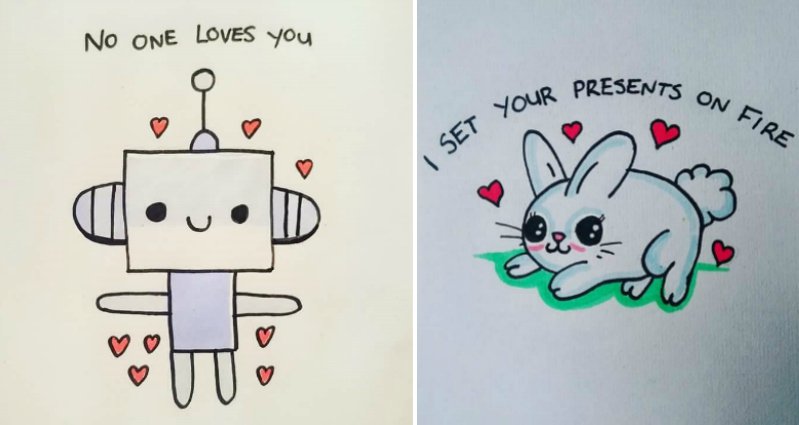 No one Loves you
I SET YOUR PRESENTS ON FIRE